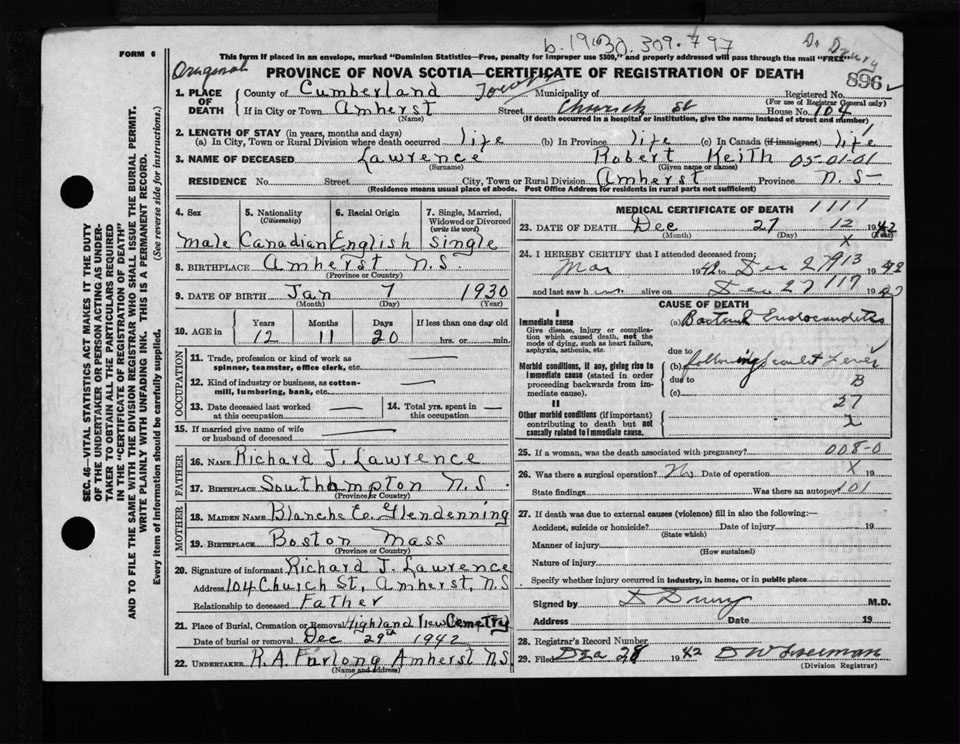 b. 1930. 309. 797
Dr Drury
FORM 6
This form if placed in an envelope, marked "Dominion Statistics—Free, penalty for improper use $300," and properly addressed will pass through the mail "FREE"
Original
PROVINCE OF NOVA SCOTIA—CERTIFICATE OF REGISTRATION OF DEATH
896
1. PLACE OF DEATH
County of Cumberland Municipality of Registered No.
(For use of Registrar General only)
If in City or Town Amherst Street Church St House No. 104
(Name) (If death occurred in a hospital or institution, give the name instead of street and number)
2. LENGTH OF STAY (in years, months and days)
(a) In City, Town or Rural Division where death occurred life (b) In Province life (c) In Canada (if immigrant) life
3. NAME OF DECEASED Lawrence Robert Keith 05-01-01
(Surname) (Given name or names)
RESIDENCE No. Street City, Town or Rural Division Amherst Province N.S.
(Residence means usual place of abode. Post Office Address for residents in rural parts not sufficient)
4. Sex 5. Nationality (Citizenship) 6. Racial Origin 7. Single, Married, Widowed or Divorced (write the word)
Male Canadian English Single
8. BIRTHPLACE Amherst N.S.
(Province or Country)
9. DATE OF BIRTH Jan 7 1930
(Month) (Day) (Year)
10. AGE in Years Months Days If less than one day old
12 11 20 hrs. or min.
OCCUPATION
11. Trade, profession or kind of work as spinner, teamster, office clerk, etc. —
12. Kind of industry or business, as cotton-mill, lumbering, bank, etc. —
13. Date deceased last worked at this occupation — 14. Total yrs. spent in this occupation —
15. If married give name of wife or husband of deceased —
FATHER
16. NAME Richard J. Lawrence
17. BIRTHPLACE Southampton N.S.
(Province or Country)
MOTHER
18. MAIDEN NAME Blanche E. Glendenning
19. BIRTHPLACE Boston Mass
(Province or Country)
20. Signature of informant Richard J. Lawrence
Address 104 Church St, Amherst, N.S
Relationship to deceased Father
21. Place of Burial, Cremation or Removal Highland View Cemetry
Date of burial or removal Dec 29th 1942
22. UNDERTAKER R.A. Furlong Amherst N.S.
(Name and address)
MEDICAL CERTIFICATE OF DEATH 1111
23. DATE OF DEATH Dec 27 12 1942
(Month) (Day) (Year)
X
24. I HEREBY CERTIFY that I attended deceased from:
Mar 1942 to Dec 27 913 1942
and last saw h im alive on Dec 27 117 19
CAUSE OF DEATH
I
Immediate cause
Give disease, injury or complication which caused death, not the mode of dying, such as heart failure, asphyxia, asthenia, etc.
(a) Bacterial Endocarditis
due to
Morbid conditions, if any, giving rise to immediate cause (stated in order proceeding backwards from immediate cause).
(b) following scarlet fever
due to B
(c)
27
II
Other morbid conditions (if important) contributing to death but not causally related to immediate cause.
X
25. If a woman, was the death associated with pregnancy? 008-0
26. Was there a surgical operation? No Date of operation X 19
State findings Was there an autopsy? 101
27. If death was due to external causes (violence) fill in also the following:—
Accident, suicide or homicide? Date of injury 19
(State which)
Manner of injury
(How sustained)
Nature of injury
Specify whether injury occurred in industry, in home, or in public place
Signed by D Drury M.D.
Address Date 19
28. Registrar's Record Number
29. Filed Dec 28 1942
(Division Registrar)
SEC. 46—VITAL STATISTICS ACT MAKES IT THE DUTY
OF THE UNDERTAKER OR PERSON ACTING AS UNDER-
TAKER TO OBTAIN ALL THE PARTICULARS REQUIRED
IN THE "CERTIFICATE OF REGISTRATION OF DEATH"
AND TO FILE THE SAME WITH THE DIVISION REGISTRAR WHO SHALL ISSUE THE BURIAL PERMIT.
WRITE PLAINLY WITH UNFADING INK. THIS IS A PERMANENT RECORD.
Every item of information should be carefully supplied. (See reverse side for instructions.)